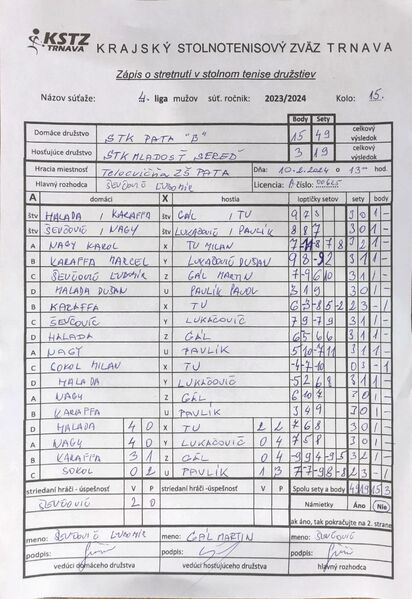 KSTZ
TRNAVA
KRAJSKÝ STOLNOTENISOVÝ ZVÄZ TRNAVA
Zápis o stretnutí v stolnom tenise družstiev
Názov súťaže: 4. liga mužov súť. ročník: 2023/2024 Kolo: 15.
Body Sety
Domáce družstvo STK PATA "B" 15 49 celkový výsledok
Hosťujúce družstvo STK MLADOSŤ SEREĎ 3 19 celkový výsledok
Hracia miestnosť Telocvičňa ZŠ PATA Dňa: 10.2.2024 o 13 hod
Hlavný rozhodca ŠEVČOVIČ ĽUBOMÍR Licencia: číslo:
A domáci X hostia loptičky setov sety body
štv HALADA / KARAFFA štv GÁL / TU 9 7 3 3 0 1 -
štv ŠEVČOVIČ / NAGY štv LUKAČOVIČ / PAVLÍK 8 8 7 3 0 1 -
A NAGY KAROL X TU MILAN 3 2 1 -
B KARAFFA MARCEL Y LUKAČOVIČ DUŠAN 9 8 -9 2 3 1 1 -
C ŠEVČOVIČ ĽUBOMÍR Z GÁL MARTIN 7 -9 6 10 3 1 1 -
D HALADA DUŠAN U PAVLÍK PAVOL 3 1 9 3 0 1 -
B KARAFFA X TU 6 -3 -8 5 -2 2 3 - 1
C ŠEVČOVIČ Y LUKAČOVIČ 7 9 -7 9 3 1 1 -
D HALADA Z GÁL 5 6 6 3 0 1 -
A NAGY U PAVLÍK 5 10 -7 11 3 1 1 -
C SOKOL MILAN X TU -4 -7 -10 0 3 - 1
D HALADA Y LUKAČOVIČ -5 2 6 8 3 1 1 -
A NAGY Z GÁL 6 10 7 3 0 1 -
B KARAFFA U PAVLÍK 3 4 9 3 0 1 -
D HALADA 4 0 X TU 2 2 7 6 8 3 0 1 -
A NAGY 4 0 Y LUKAČOVIČ 0 4 7 5 8 3 0 1 -
B KARAFFA 3 1 Z GÁL 0 4 -9 9 4 -9 5 3 2 1 -
C SOKOL 0 2 U PAVLÍK 1 3 2 3 - 1
striedaní hráči - úspešnosť V P striedaní hráči - úspešnosť V P Spolu sety a body 49 19 15 3
ŠEVČOVIČ 2 0 Námietky Áno Nie
ak áno, tak pokračujte na 2. strane
meno: ŠEVČOVIČ ĽUBOMÍR meno: GÁL MARTIN meno: ŠEVČOVIČ
podpis: podpis: podpis:
vedúci domáceho družstva vedúci hosťujúceho družstva hlavný rozhodca